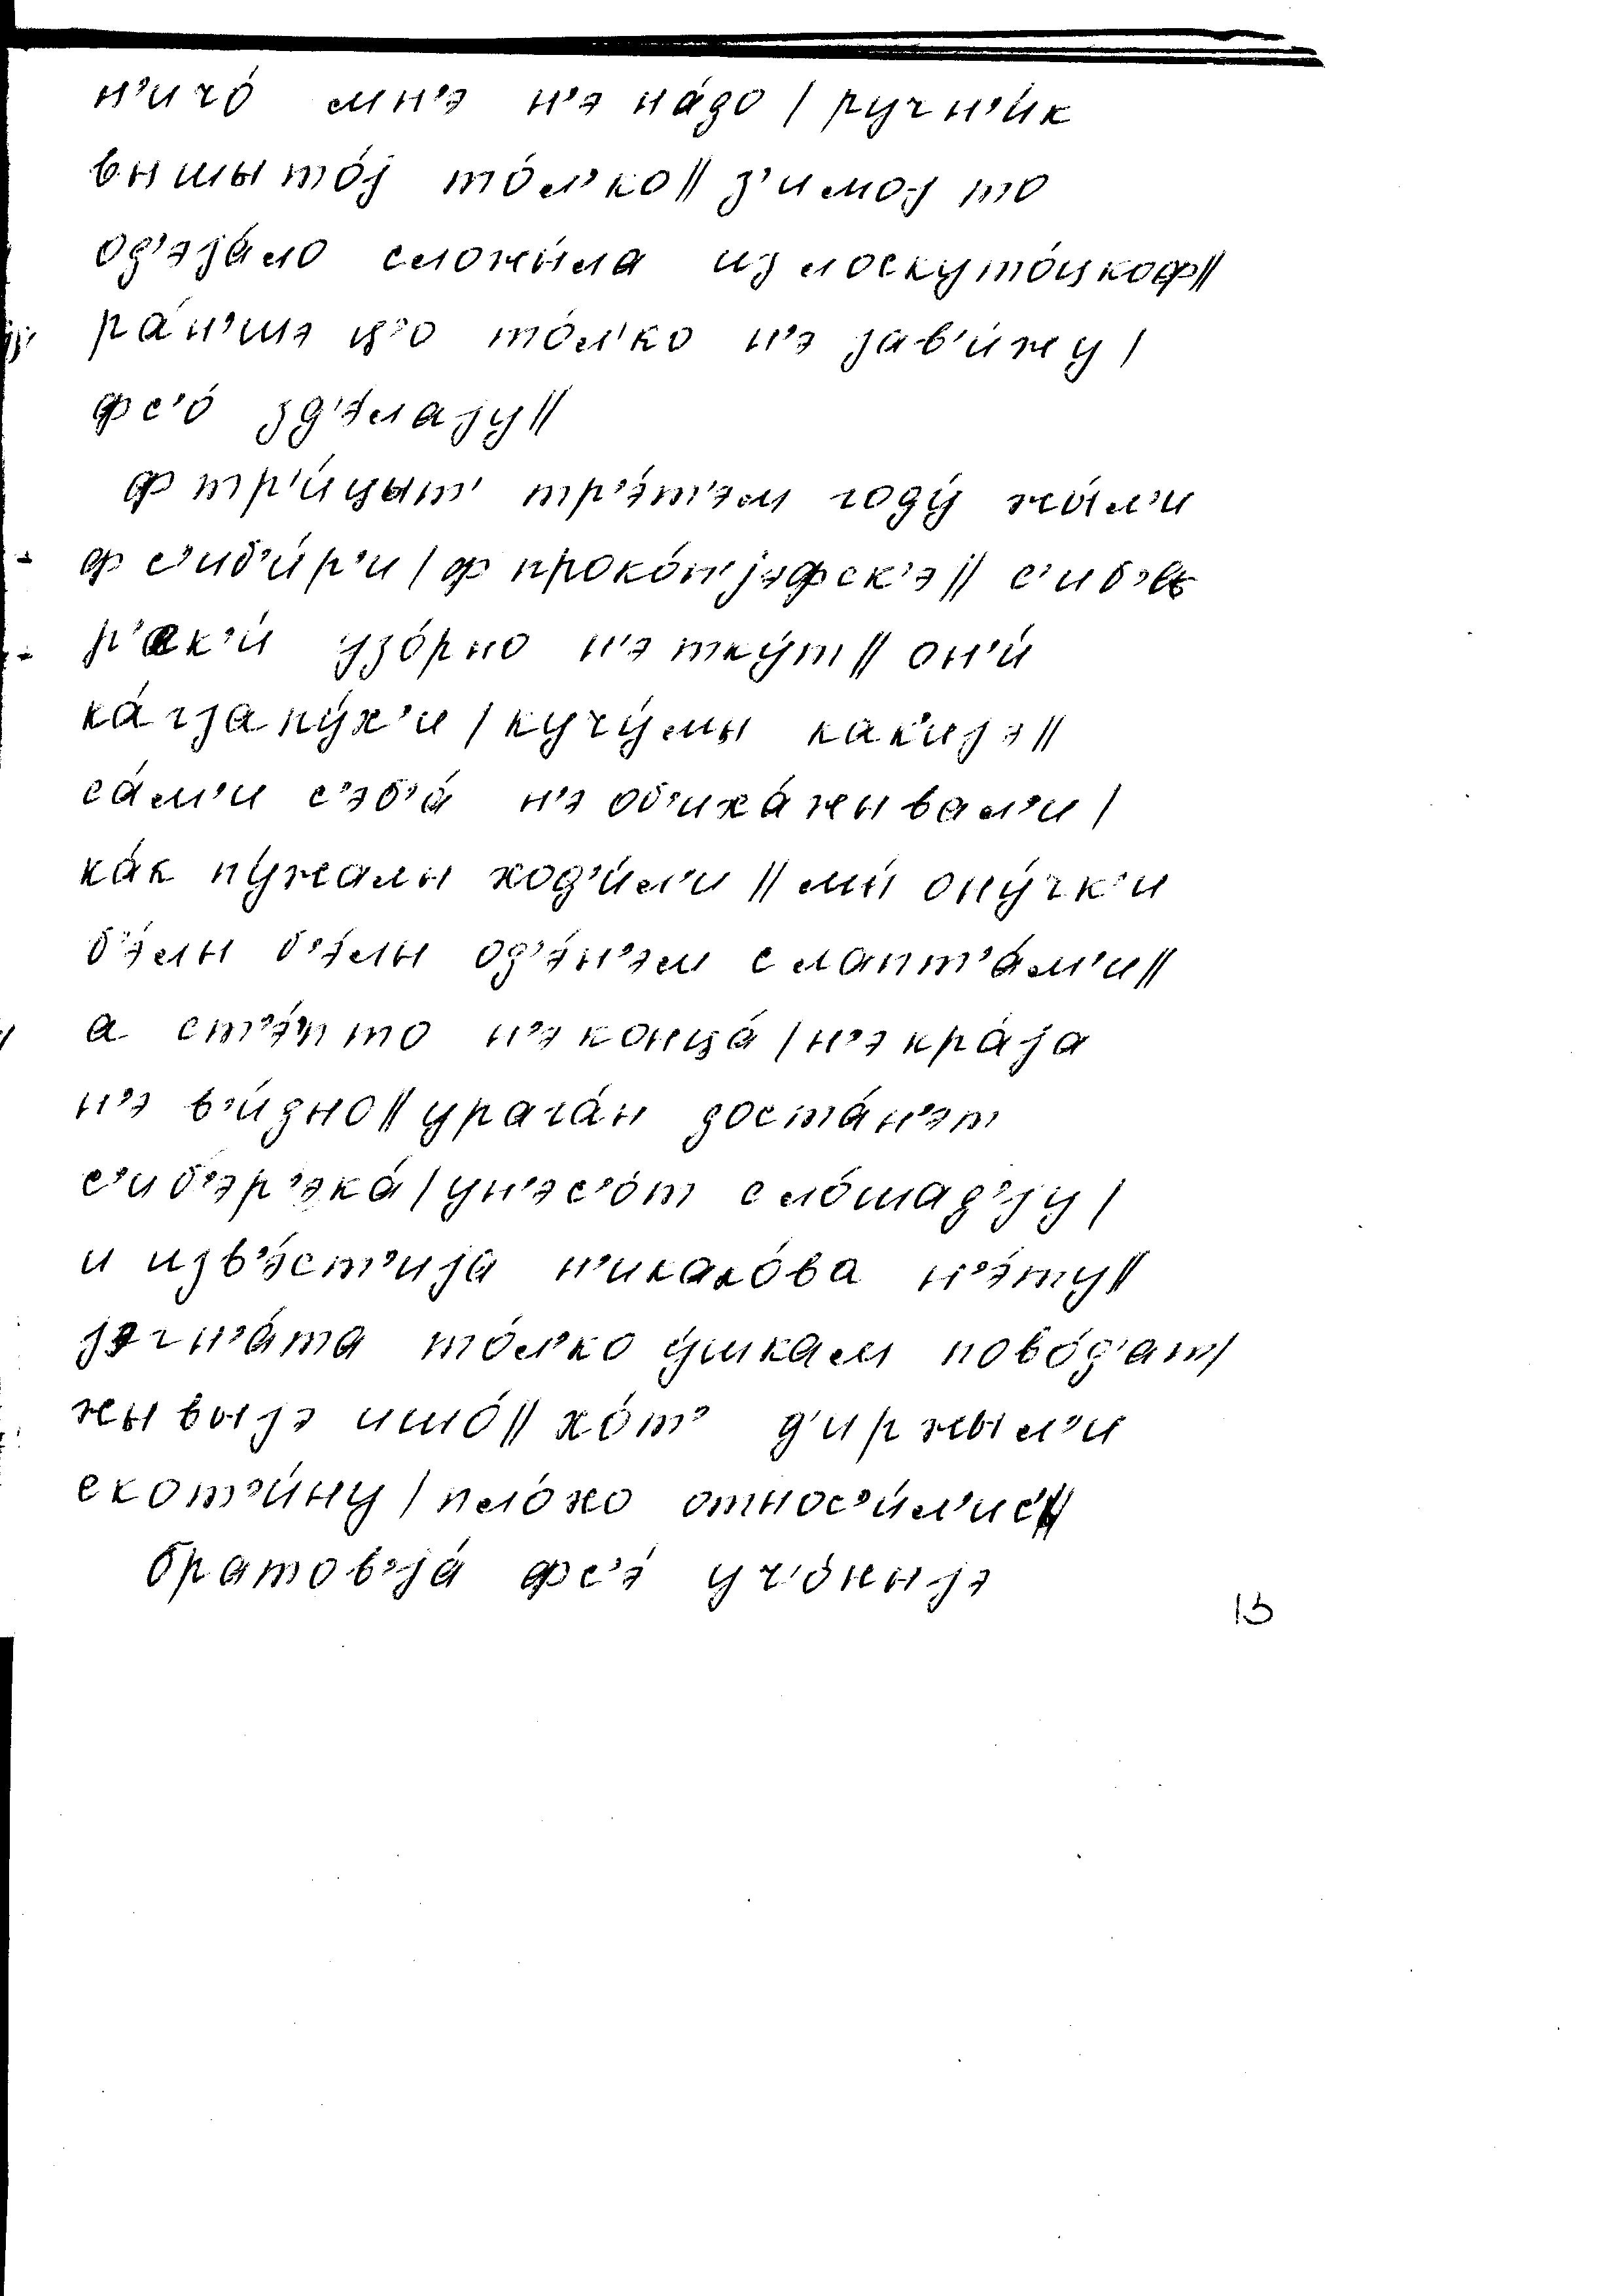 н'ичо́ мн'э н'э на́до / ручн'и́к
вышыто́j то́л'ко // з'имоj то
од'эjа́ло сложы́ла из лоскуто́цкоф //
ра́н'шэ ц'о то́л'ко н'э jав'и́жу /
фс'о́ зд'э́лаjу //
ф тр'и́цыт' тр'э́т'эм году́ жы́л'и
ф с'иб'и́р'и / ф проко́п'jэфск'э // с'иб'э
р'ак'и́ узо́рно н'э тку́т // он'и́
ка́гзапу́х'и / кучу́мы как'иjэ //
са́м'и с'эб'а́ н'э об'иха́жывал'и /
ка́к пу́жалы ход'и́л'и // мы́ ону́чк'и
б'э́лы б'э́лы од'э́н'эм с лапт'а́м'и //
а ст'э́п' то н'э конца́ / н'э кра́jа
н'э в'и́дно // урага́н доста́н'эт
с'иб'эр'эка́ / ун'эс'о́т с ло́шад'jу /
и изв'э́ст'иjа н'икако́ва н'э́ту //
jэгн'а́та то́л'ко у́шкам пово́д'ат /
жывыjэ ишо́ // хо́т' д'иржыл'и
скот'и́ну / пло́хо относ'и́л'ис' //
братов'jа́ фс'э́ уч'о́ныjэ
13